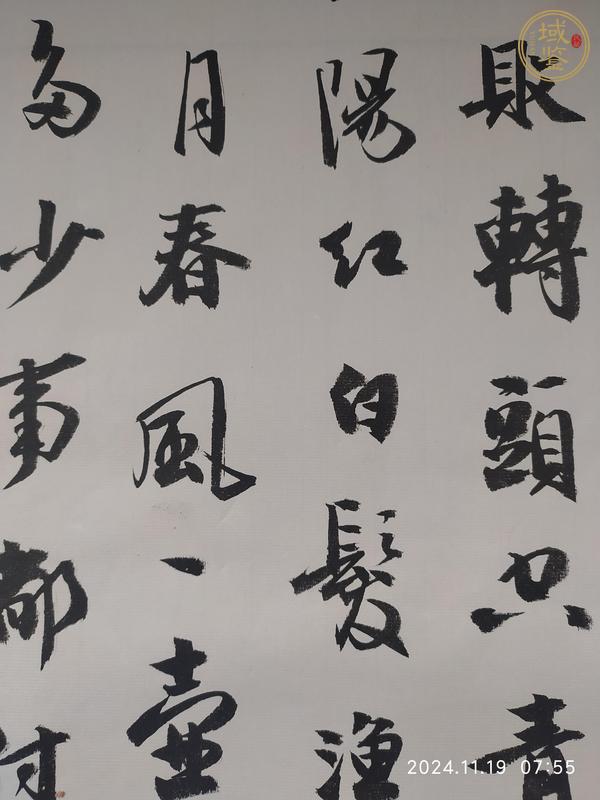 敗轉頭空青
陽紅白髮漁
月春風一壺
多少事都付
域鉴
2024.11.19 07:55